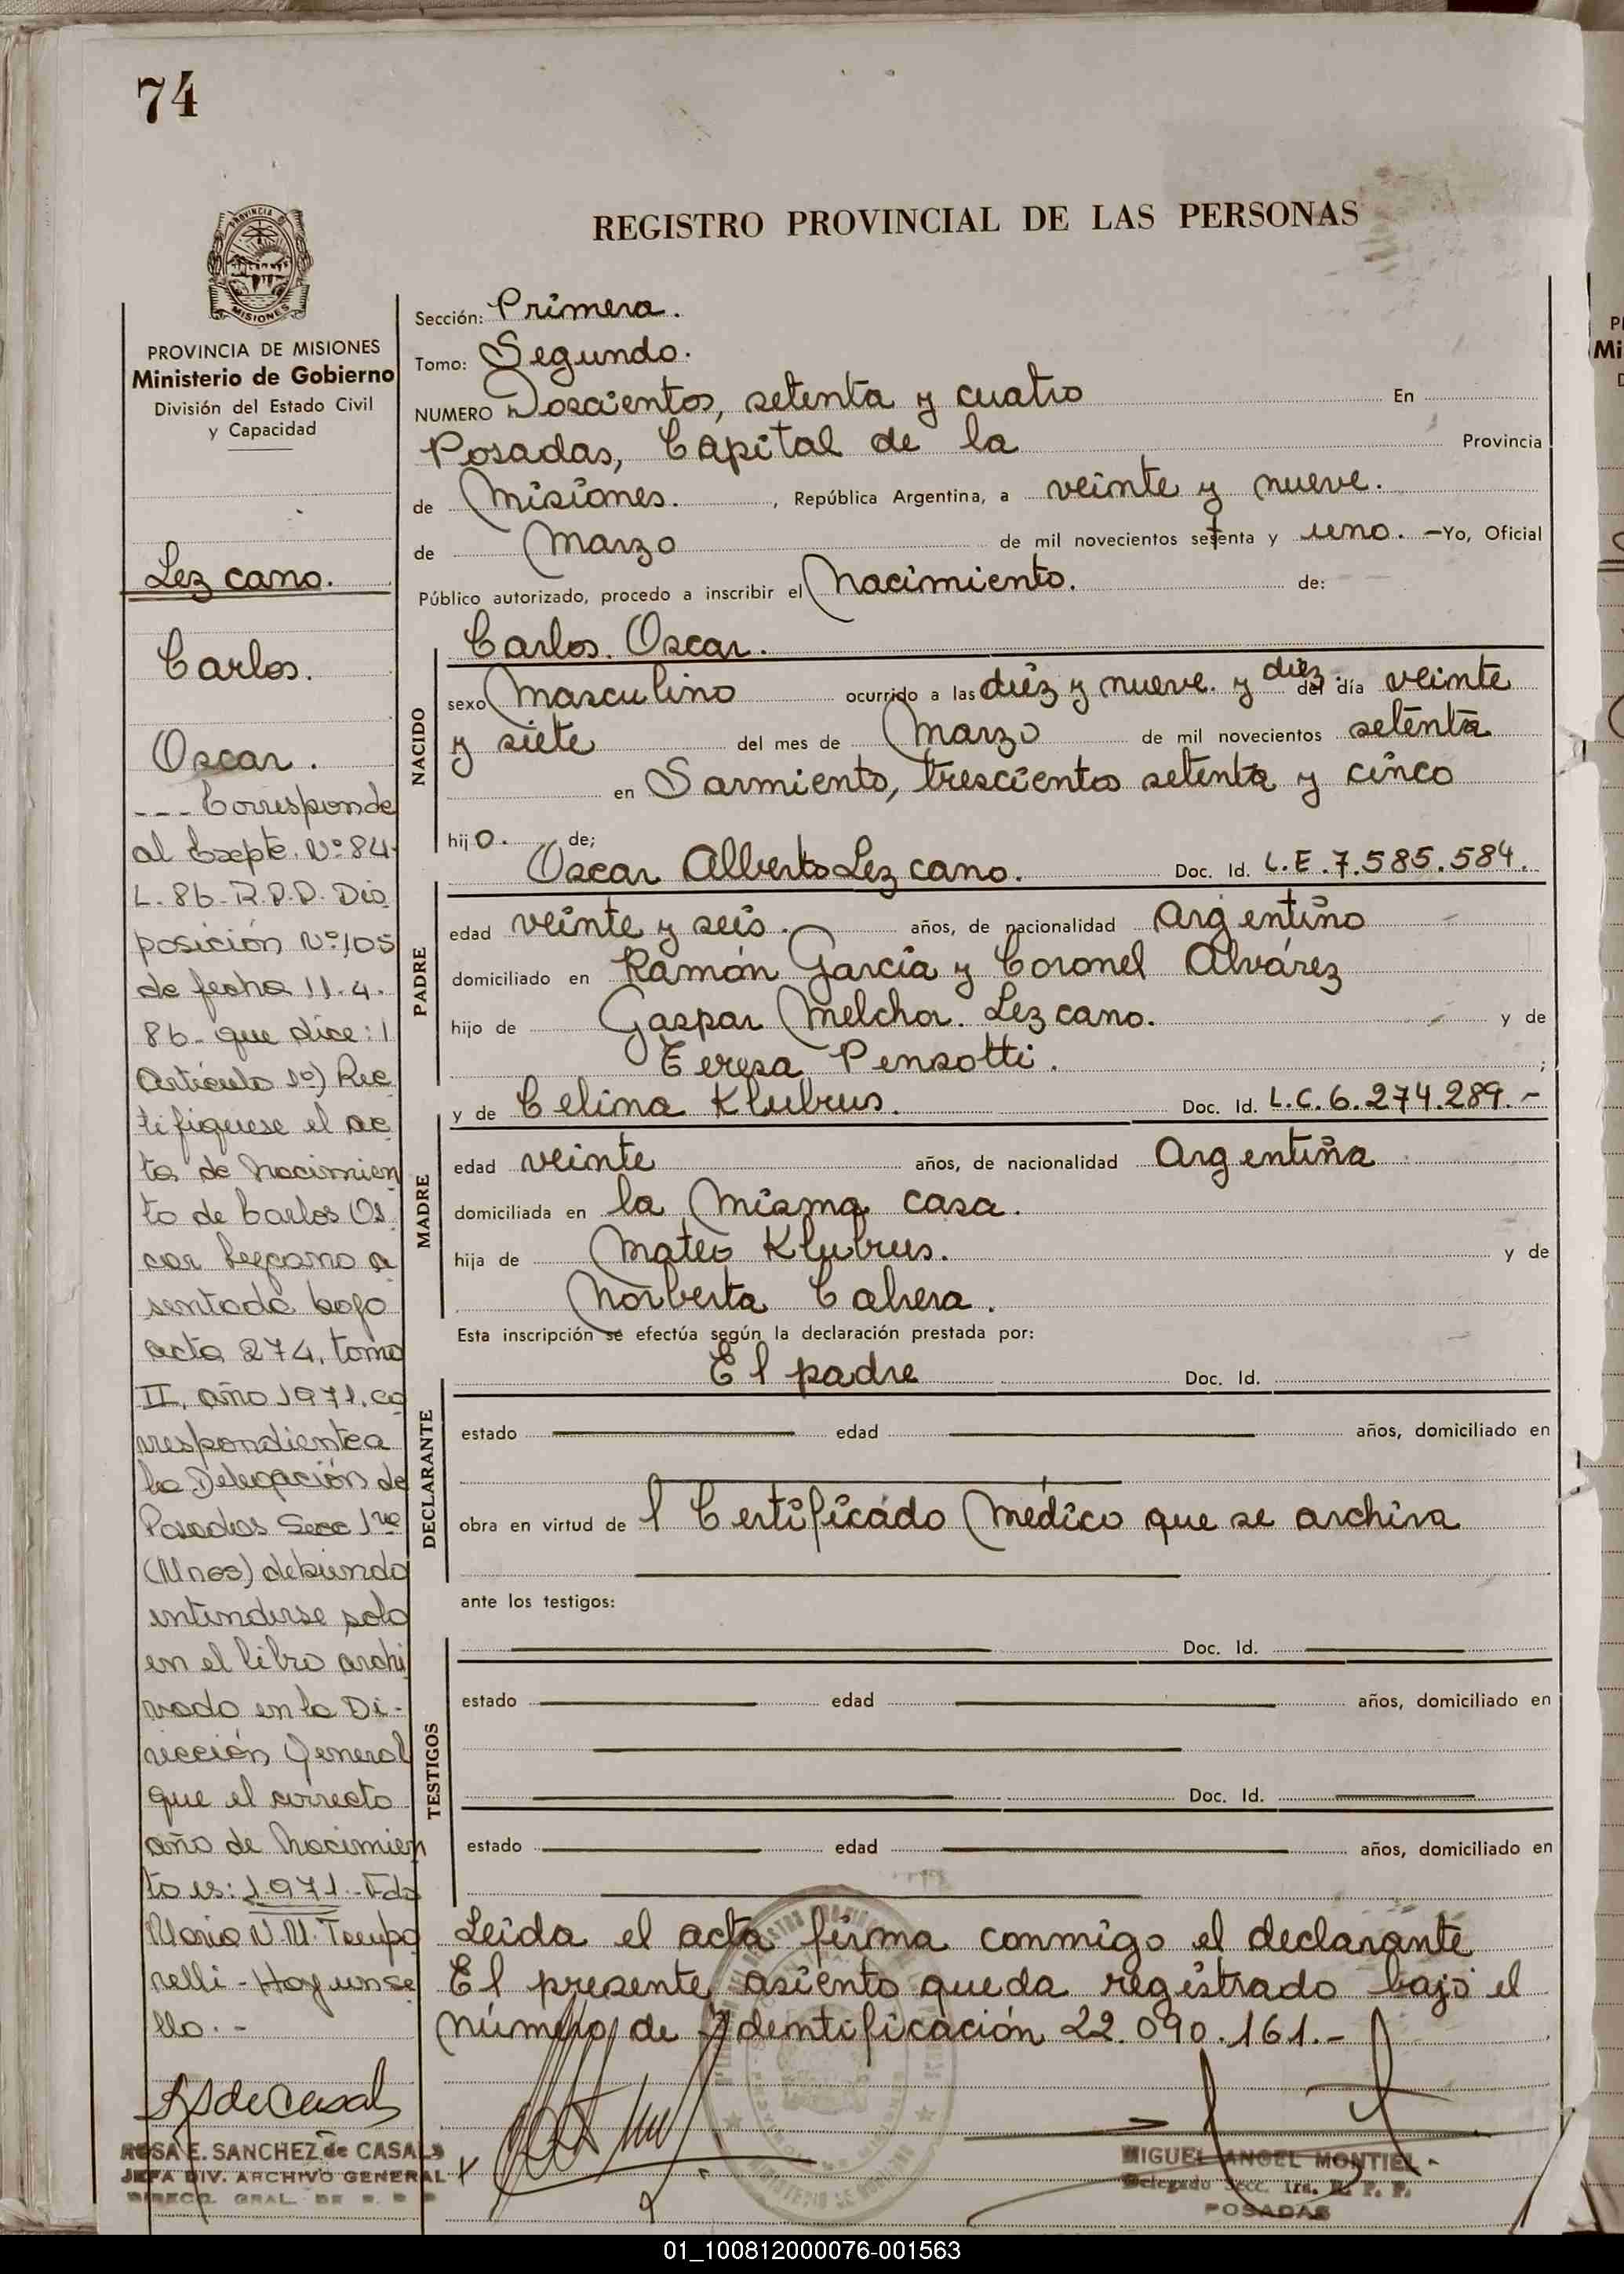 74
REGISTRO PROVINCIAL DE LAS PERSONAS
PROVINCIA DE MISIONES
Ministerio de Gobierno
División del Estado Civil
y Capacidad
Lezcano.
Carlos.
Oscar.
--- Corresponde
al Expte. Nº 84-
L-86-R.P.P. Dis
posición Nº 105
de fecha 11.4.
86- que dice:
Artículo 1º) Rec
tifiquese el ac
ta de Nacimien
to de Carlos Os
car Lezcano a
sentada bajo
acta 274, tomo
II, año 1971, co
rrespondiente a
la Delegación de
Posadas Secc 1ra
(Mnes) debiendo
entenderse solo
en el libro archi
vado en la Di-
rección General
que el correcto
año de Nacimien
to es: 1971.- Fdo
Maria N.M.
Hay un se
llo.-
ROSA E. SANCHEZ de CASALS
JEFA DIV. ARCHIVO GENERAL
DIRECC. GRAL. DE R. P. P
Sección: Primera.
Tomo: Segundo.
NUMERO Doscientos, setenta y cuatro En
Posadas, Capital de la Provincia
de Misiones. , República Argentina, a veinte y nueve.
de Marzo de mil novecientos setenta y uno. —Yo, Oficial
Público autorizado, procedo a inscribir el Nacimiento. de:
Carlos. Oscar.
NACIDO
sexo Masculino ocurrido a las diéz y nueve. y diéz. del día veinte
y siete del mes de Marzo de mil novecientos setenta
en Sarmiento, trescientos setenta y cinco
hijo. de;
Oscar Alberto Lezcano. Doc. Id. L.E.7.585.584.
PADRE
edad veinte y seis. años, de nacionalidad Argentino
domiciliado en Ramón García y Coronel Alvárez
hijo de Gaspar Melchor. Lezcano. y de
Teresa Pensotti. ;
y de Celina Klubrus. Doc. Id. L.C.6.274.289.-
MADRE
edad veinte años, de nacionalidad Argentina
domiciliada en la Misma casa.
hija de Mateo Klubrus. y de
Norberta Cabrera.
Esta inscripción se efectúa según la declaración prestada por:
El padre Doc. Id.
DECLARANTE
estado edad años, domiciliado en
obra en virtud de l Certificado Médico que se archiva
ante los testigos:
Doc. Id.
TESTIGOS
estado edad años, domiciliado en
Doc. Id.
estado edad años, domiciliado en
Leída el acta firma conmigo el declarante
El presente asiento queda registrado bajo el
número de Identificación 22.090.161.-
MIGUEL ANGEL MONTIEL
Delegado Secc. 1ra. R. P. P.
POSADAS
01_100812000076-001563